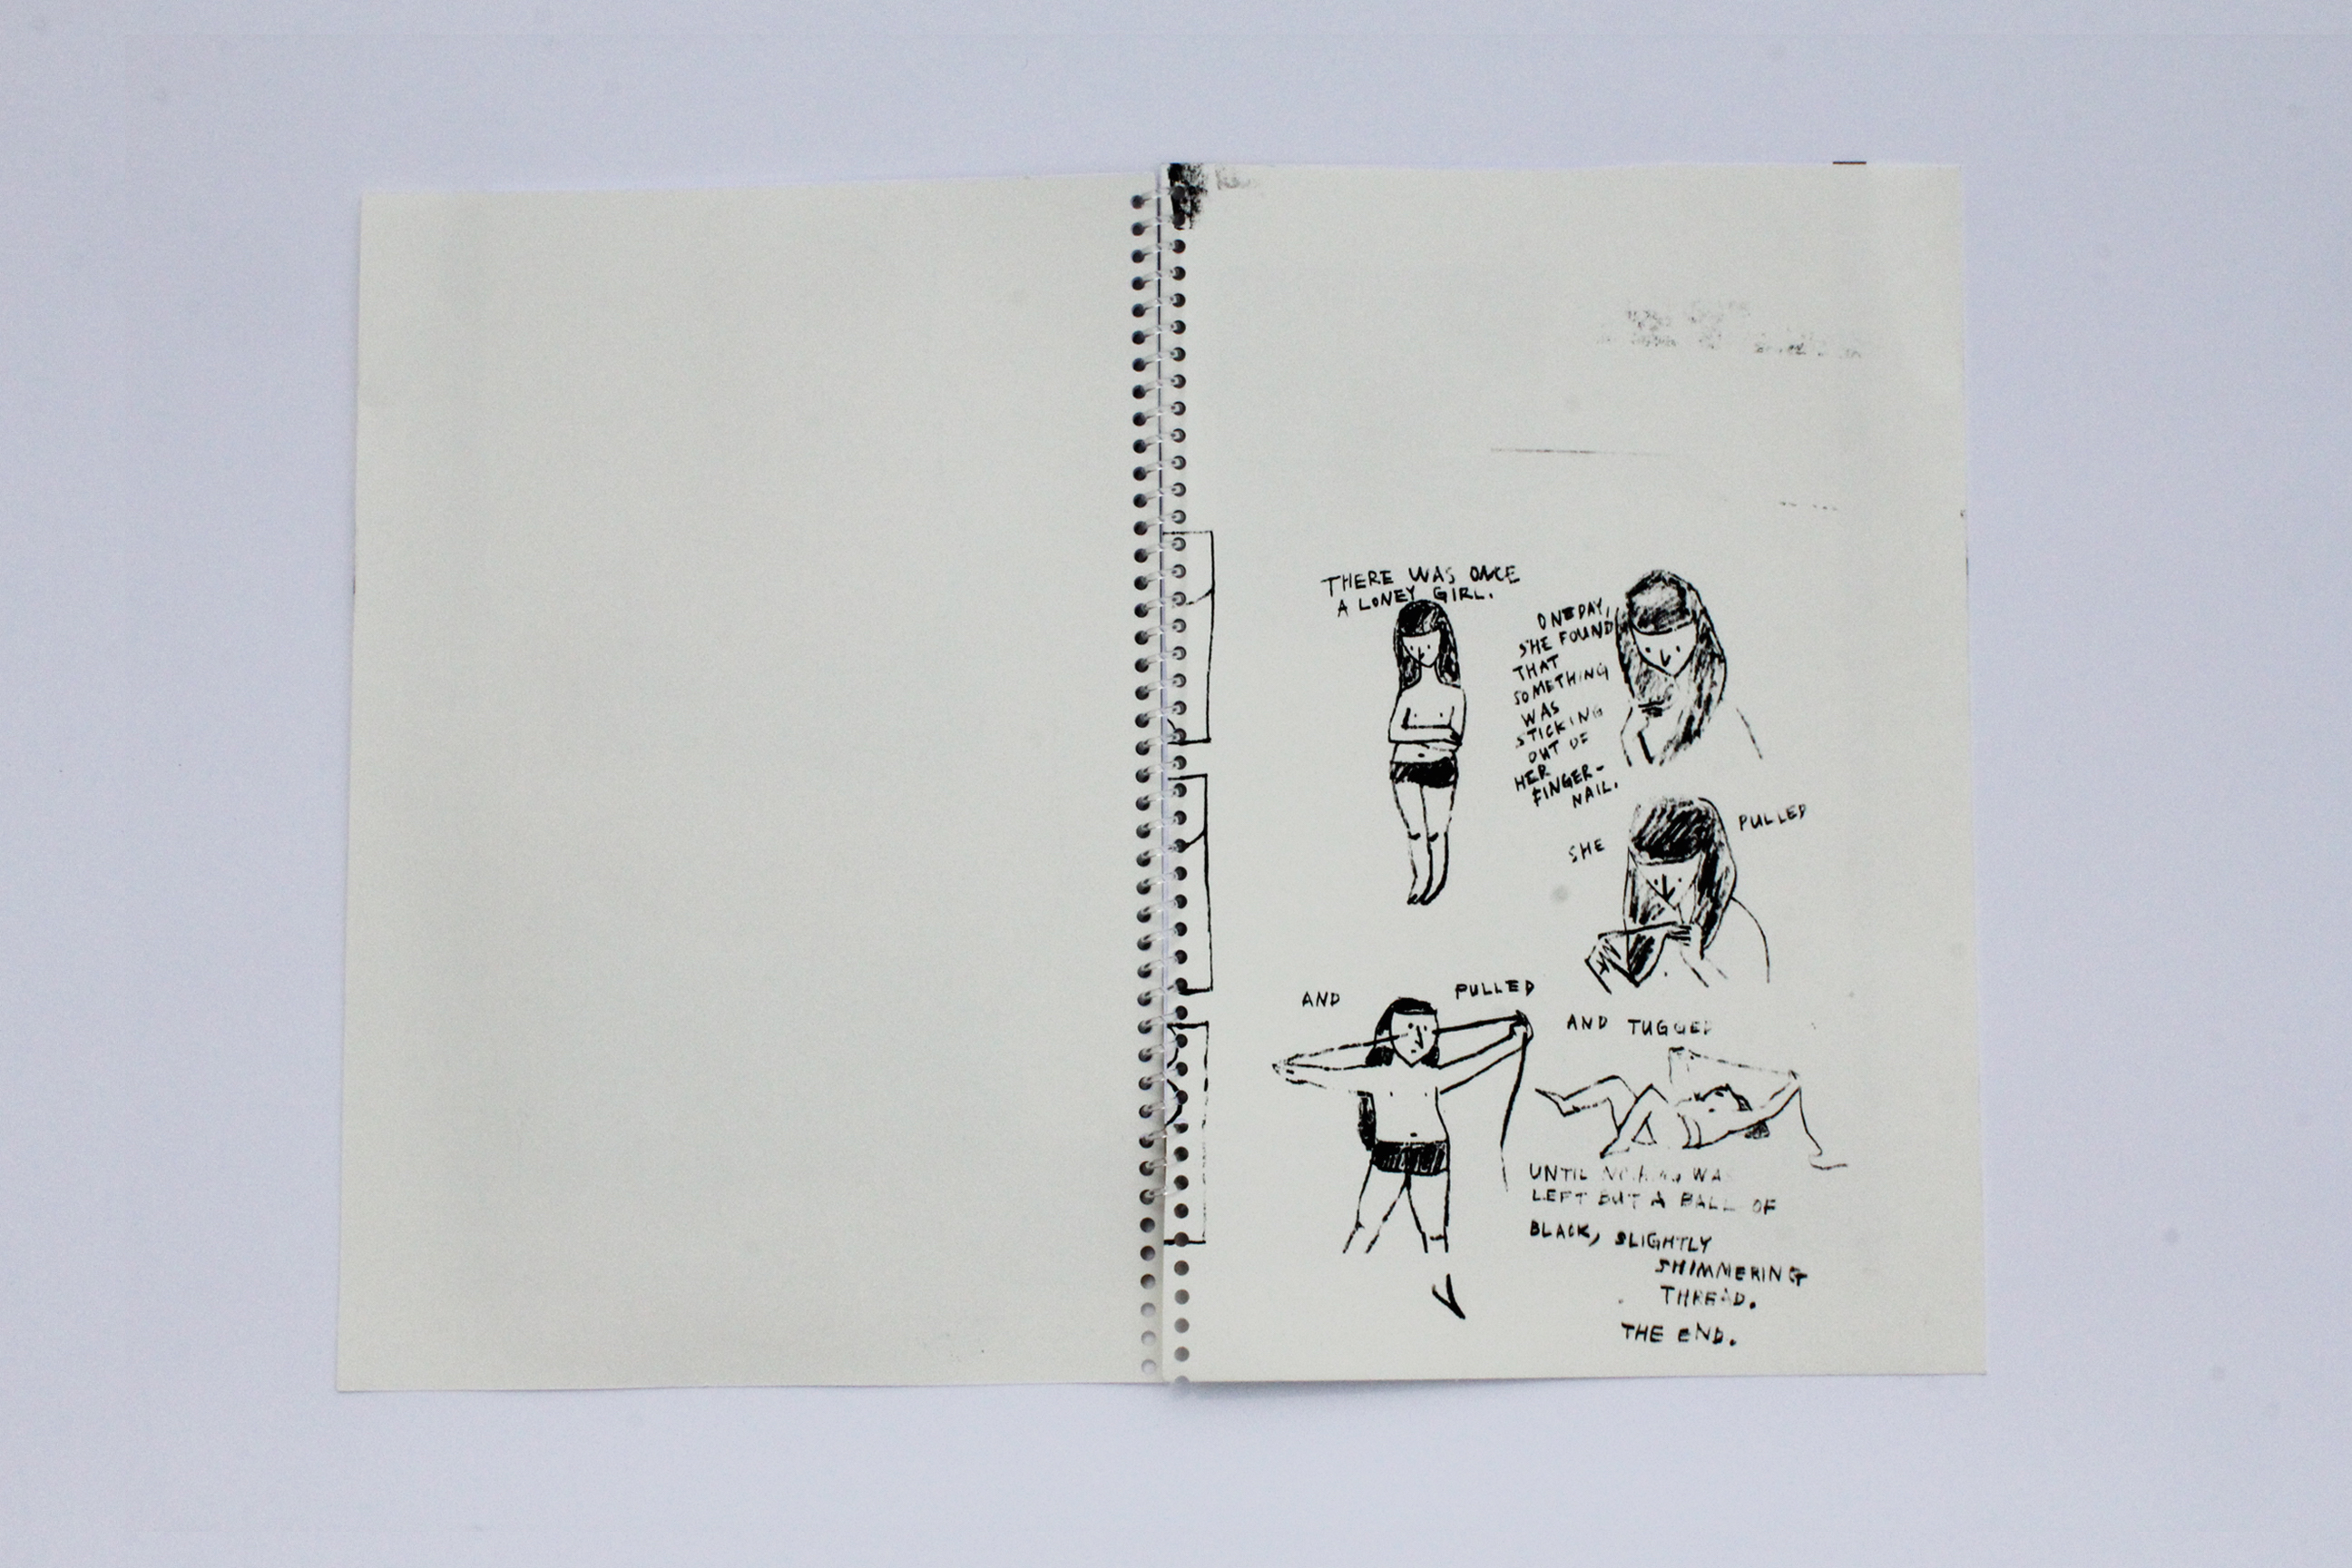 THERE WAS ONCE
A LONEY GIRL.
ONE DAY,
SHE FOUND
THAT
SOMETHING
WAS
STICKING
OUT OF
HER
FINGER-
NAIL.
SHE PULLED
AND PULLED
AND TUGGED
UNTIL NOTHING WAS
LEFT BUT A BALL OF
BLACK, SLIGHTLY
SHIMMERING
THREAD.
THE END.